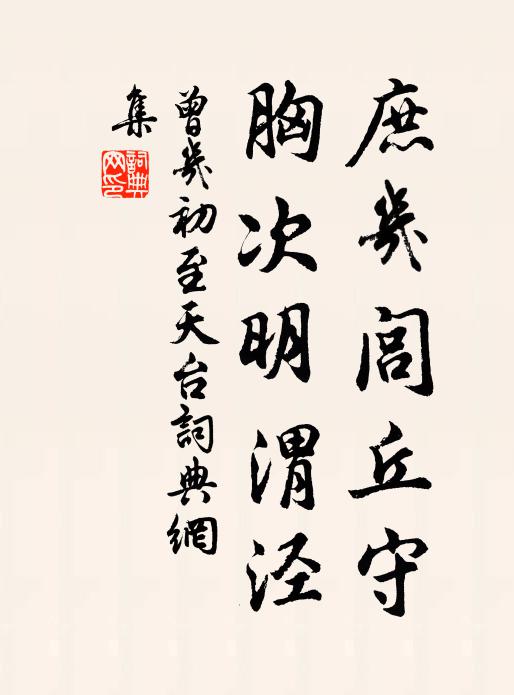 庶幾閭丘守
胸次明渭泾
曾幾初至天台詞典網
集
詞典
网印